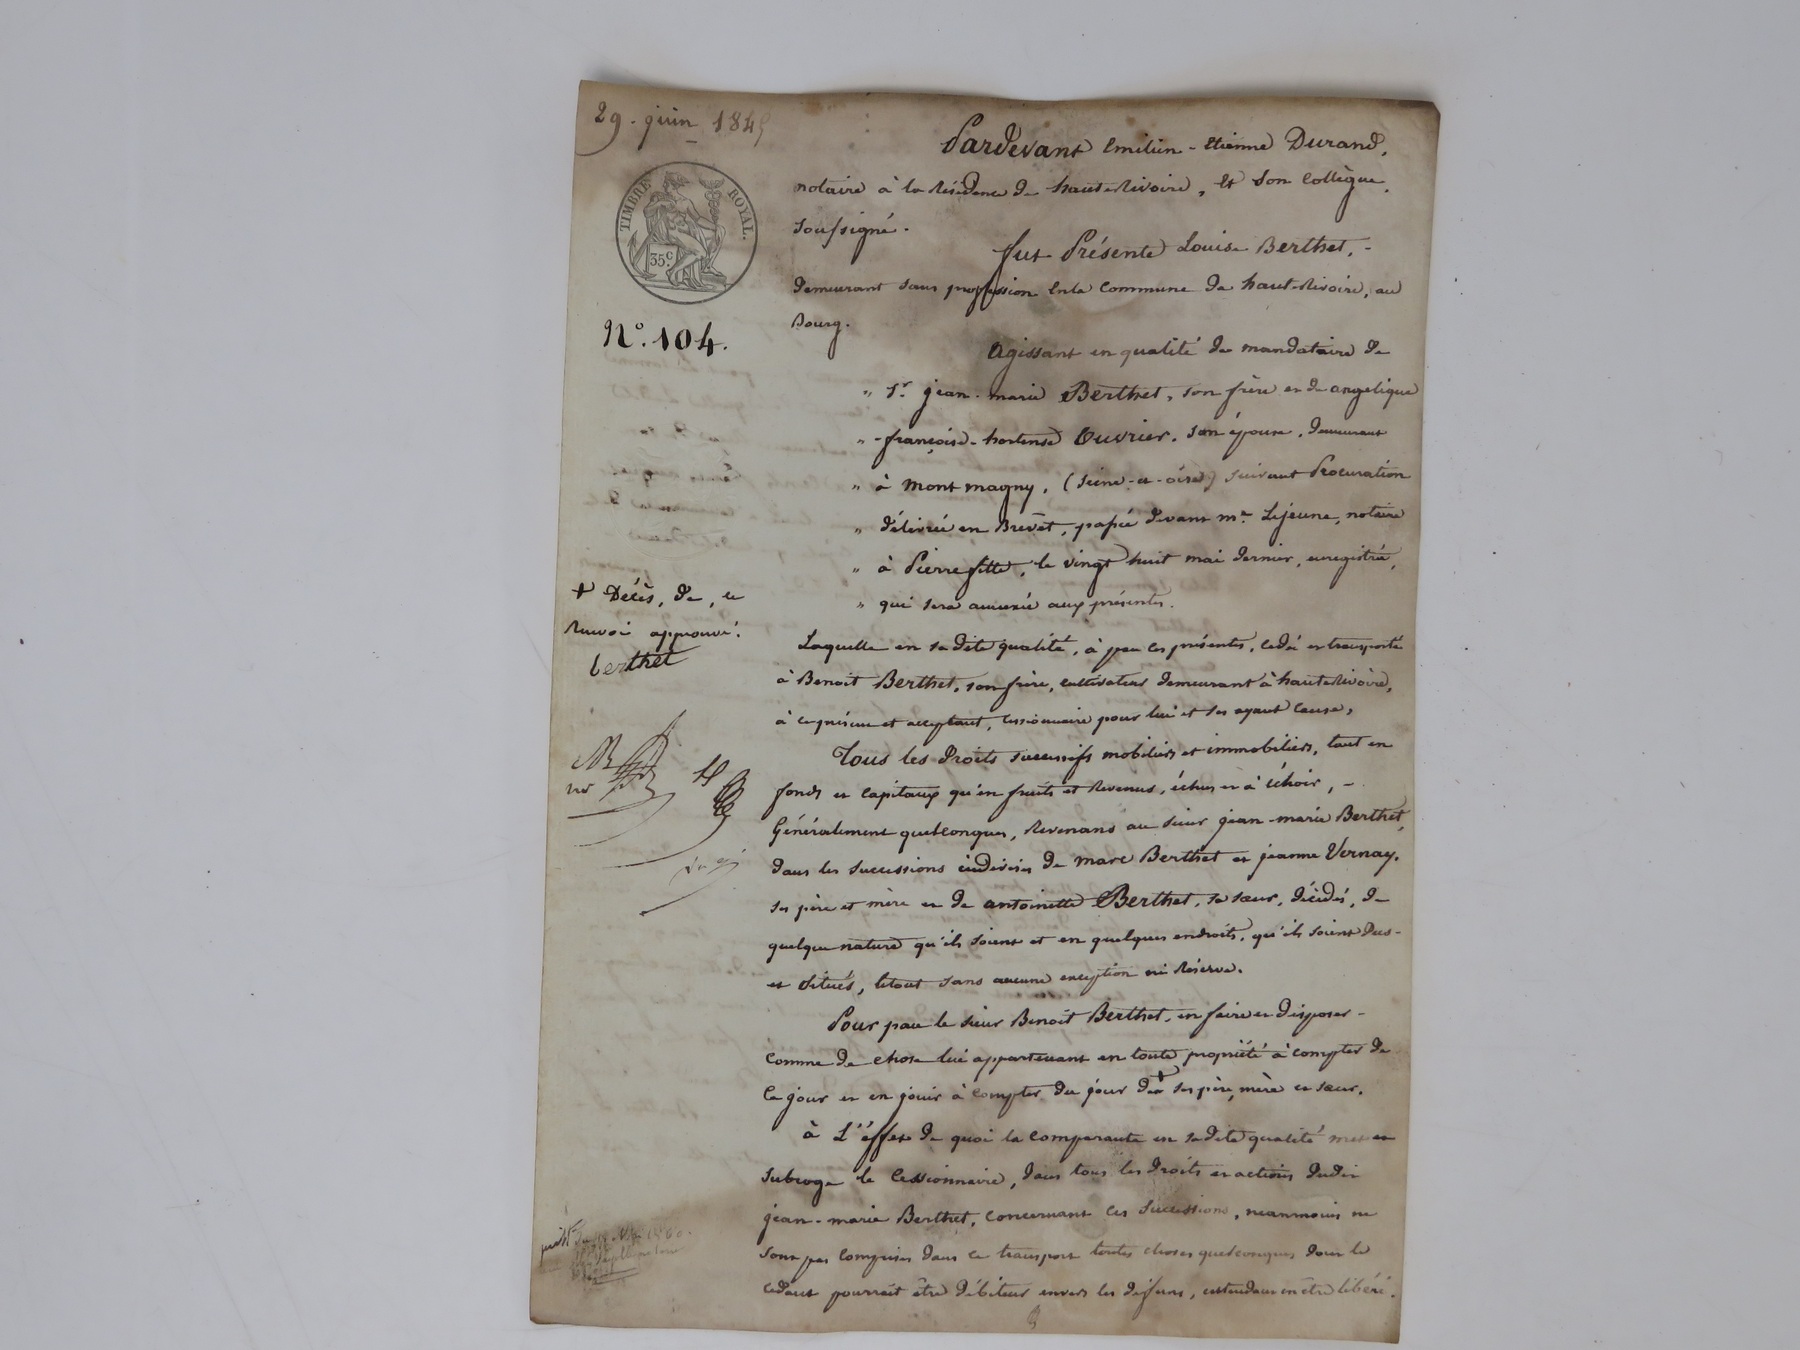 29. juin 1845
Pardevant Emilien-Etienne Durand,
notaire à la Résidence de hauterivoire, et son collègue,
soussigné.
TIMBRE ROYAL.
35c.
fut Présente Louise Berthet,
demeurant sans profession en la Commune de hauterivoire, au
Bourg.
N.° 104.
Agissant en qualité de mandataire de
" Sr. jean-marie Berthet, son frère et de angelique
" -françoise-hortense Ouvrier, son épouse, demeurant
" à Montmagny, (seine-et-oise) suivant Procuration
" délivrée en Brevet, passée devant me. Lejeune, notaire
" à Pierrefitte, le vingt huit mai dernier, enregistrée,
" qui sera annexée aux présentes.
+ Décès, de, ce
Renvoi approuvé.
berthet
Laquelle en sa dite qualité, à par ces présentes, cédé et transporté
à Benoit Berthet, son frère, cultivateur demeurant à hauterivoire,
à ce présent et acceptant, cessionnaire pour lui et ses ayant cause,
Tous les Droits successifs mobiliers et immobiliers, tant en
fonds et capitaux qu'en fruits et Revenus, échus et à échoir, -
Généralement quelconques, Revenans au sieur jean-marie Berthet,
dans les successions indivises de marc Berthet et jeanne Vernay,
ses père et mère et de antoinette Berthet, sa sœur, décédés, de
quelque nature qu'ils soient et en quelques endroits, qu'ils soient dus-
et situés, le tout sans aucune exception ni Réserve.
Pour par le sieur Benoit Berthet, en faire et disposer -
comme de chose lui appartenant en toute propriété à compter de
ce jour et en jouir à compter du jour des + ses père, mère et sœur.
à L'effet de quoi la comparante en sa dite qualité met et
subroge le cessionnaire, dans tous les droits et actions dudit
jean-marie Berthet, concernant ces successions, néanmoins ne
sont pas comprises dans ce transport toutes choses quelconques dont le
cédant pourrait être débiteur envers les défunts, entendant en être libéré.